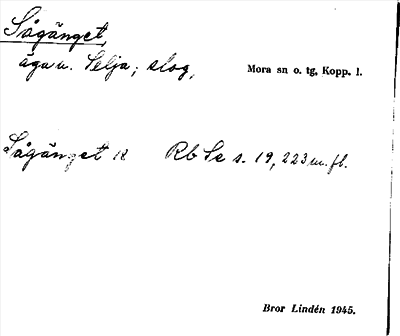 Sågänget,
äga u. Selja; slog,
Mora sn o. tg, Kopp. l.
Sågänget R Rb Se s. 19, 223 m. fl.
Bror Lindén 1945.